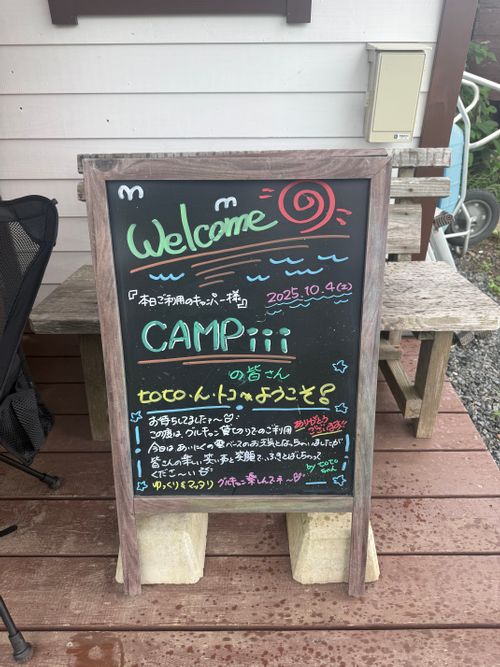 Welcome
『本日ご利用のキャンパー様』
2025.10.4(土)
CAMPiii
の皆さん
toto・ん・トコへようこそ!
お待ちしてましたァ〜
この度は、グルキャン貸切りでのご利用
ありがとうございます!!
今日はあいにくの雲ベースのお天気となっちゃいましたが
皆さんの楽しい笑い声と笑顔で、ふきとばしちゃって
くださ〜い
by toto
ちゃん
ゆっくり&マッタリ グルキャン楽しんでネ〜